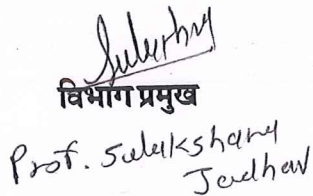 विभाग प्रमुख
Prof. Sulakshany
Jadhav